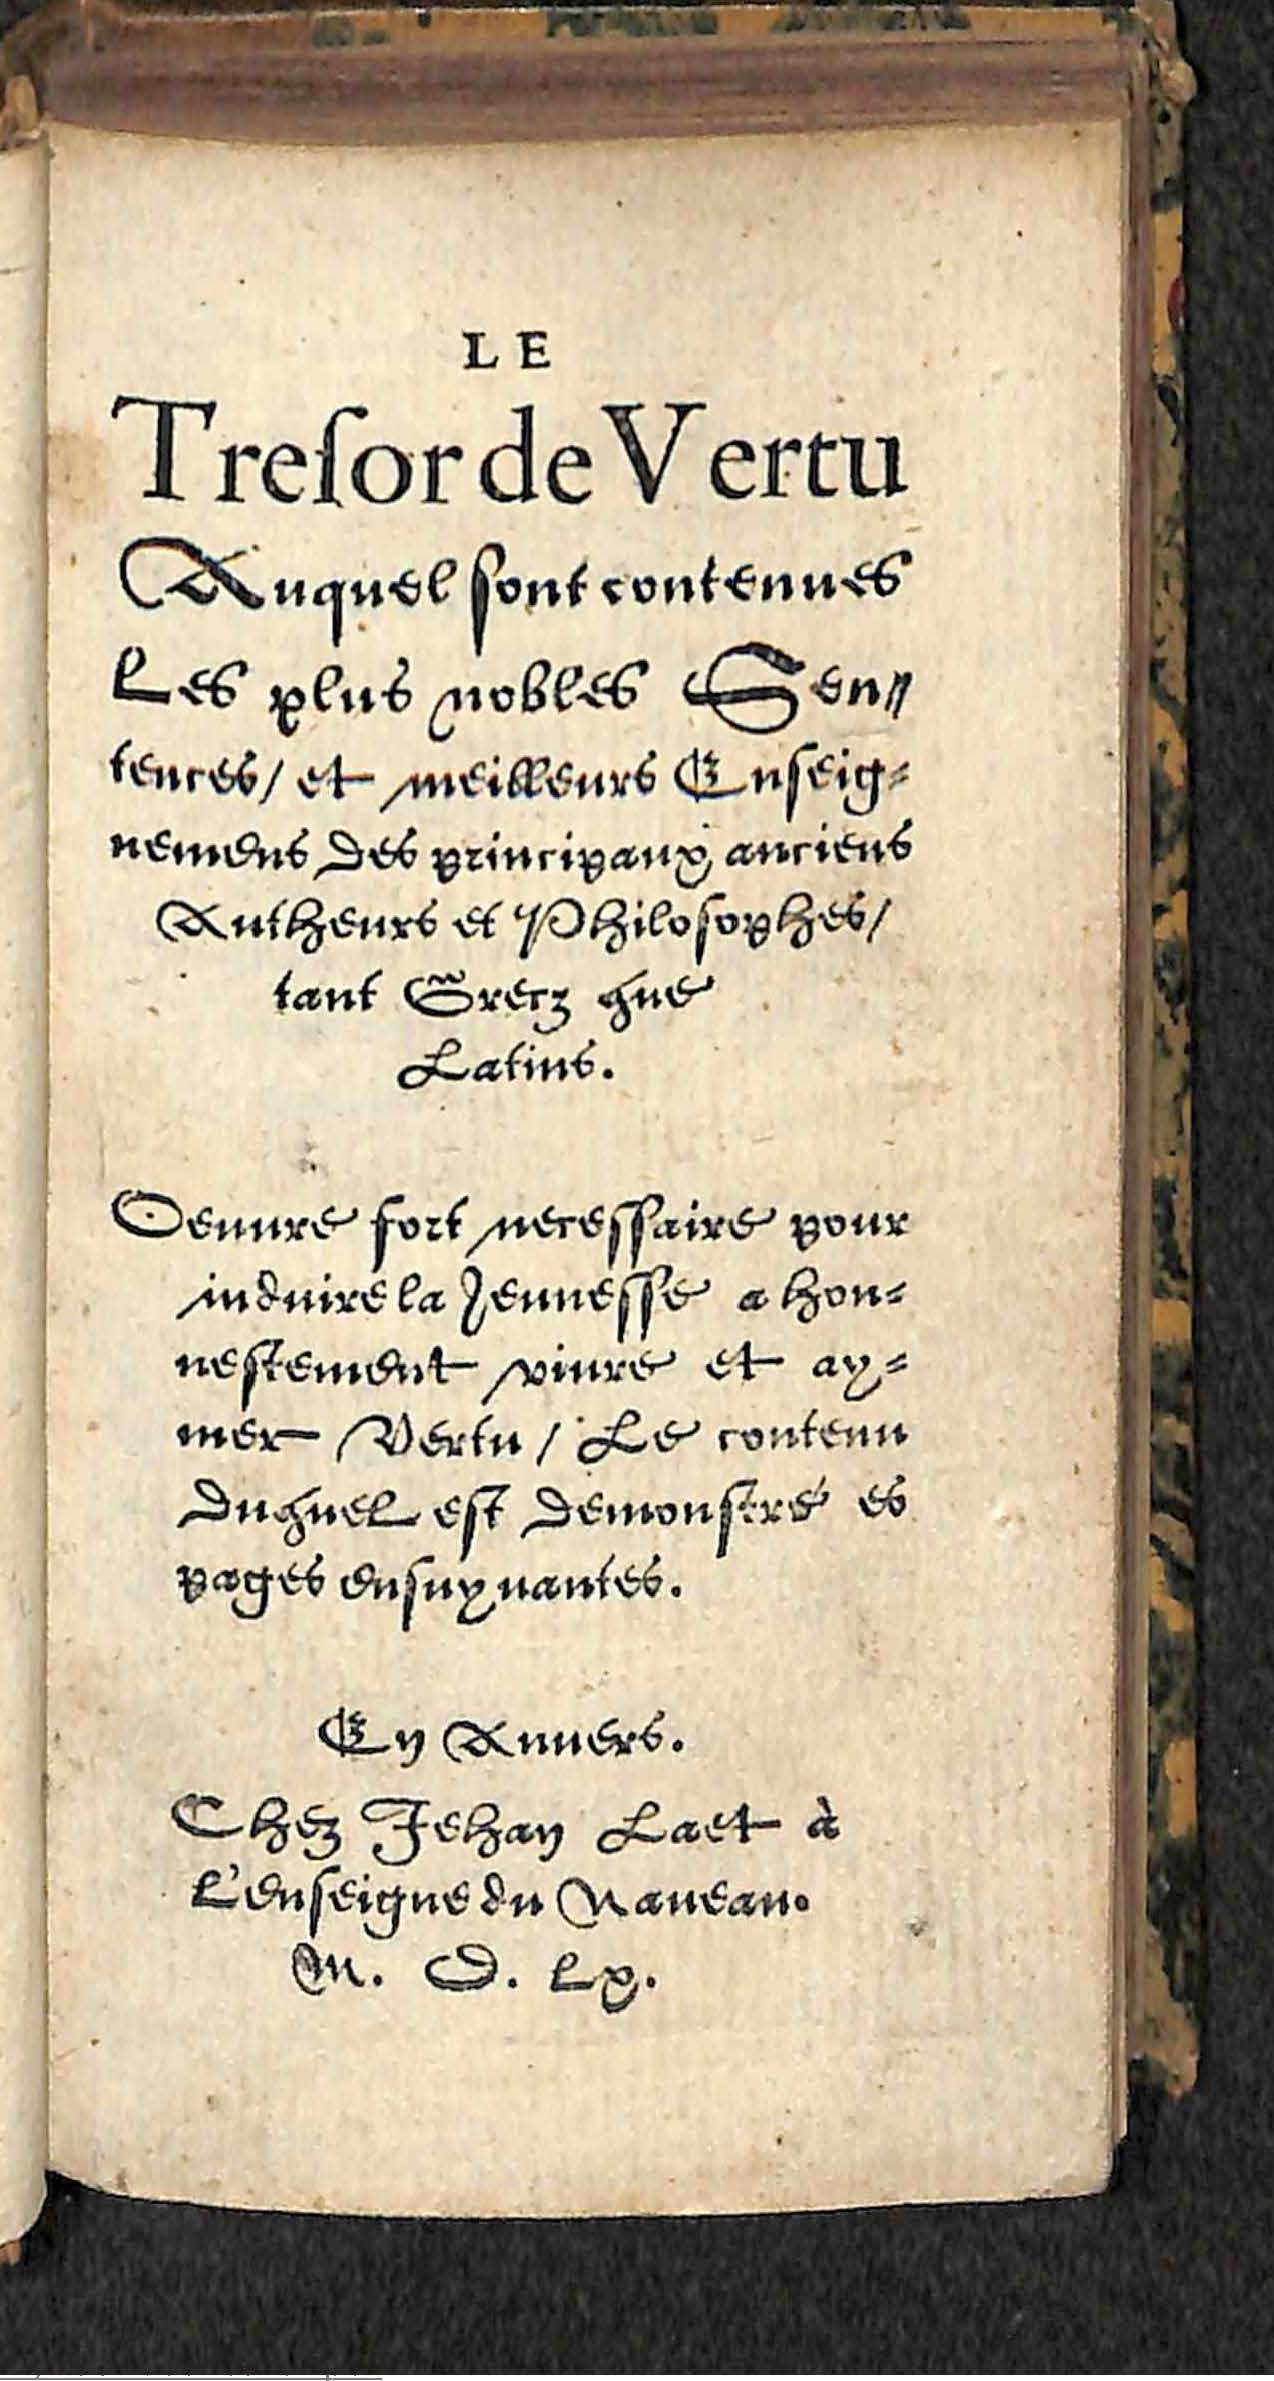 LE
Treſor de Vertu
Auquel ſont contenues
Les plus nobles Sen⸗
tences/ et meilleurs Enſeig⸗
nemens des principaux anciens
Autheurs et Philoſophes/
tant Grecz que
Latins.
Oeuure fort neceſſaire pour
induire la Jeuneſſe a hon⸗
neſtement viure et ay⸗
mer Vertu/ Le contenu
duquel eſt demonſtré es
pages enſuyuantes.
En Anuers.
Chez Jehan Laet à
l'enſeigne du Naueau.
M. D. Lx.